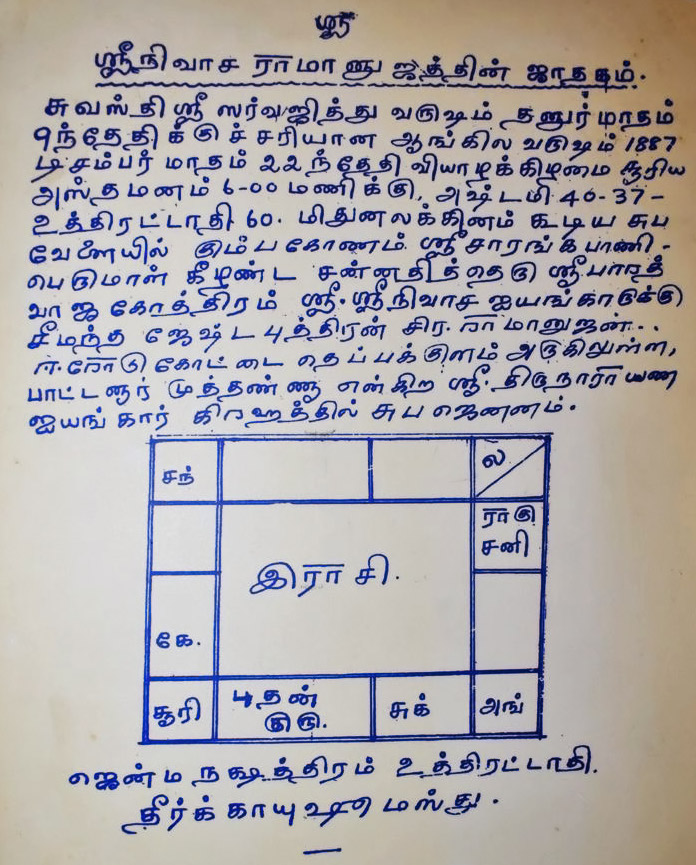 ஸ்ரீ
ஸ்ரீநிவாச ராமானுஜத்தின் ஜாதகம்.
சுவஸ்திஸ்ரீ ஸர்வஜித்து வருஷம் தனுர்மாதம்
9ந்தேதிக்குச் சரியான ஆங்கில வருஷம் 1887
டிசம்பர் மாதம் 22ந்தேதி வியாழக்கிழமை சூரிய
அஸ்தமனம் 6-00 மணிக்கு, அஷ்டமி 40-37-
உத்திரட்டாதி 60. மிதுனலக்கினம் கூடிய சுப
வேளையில் கும்பகோணம் ஸ்ரீசாரங்கபாணி-
பெருமாள் கீழண்ட சன்னதித்தெரு ஸ்ரீபாரத்
வாஜ கோத்திரம் ஸ்ரீ.ஸ்ரீநிவாச ஐயங்காருக்கு
சீமந்த ஜேஷ்ட புத்திரன் சிர. ராமானுஜன்..
ஈ.ரோடு கோட்டை தெப்பக்குளம் அருகிலுள்ள,
பாட்டனார் முத்தண்ணு என்கிற ஸ்ரீ. திருநாராயண
ஐயங்கார் கிரஹத்தில் சுபஜெனனம்.
சந்
ல
ராகு
சனி
இராசி.
கே.
சூரி
புதன்
குரு.
சுக்
அங்
ஜென்ம நக்ஷத்திரம் உத்திரட்டாதி.
தீர்க்காயுஷூமஸ்து.